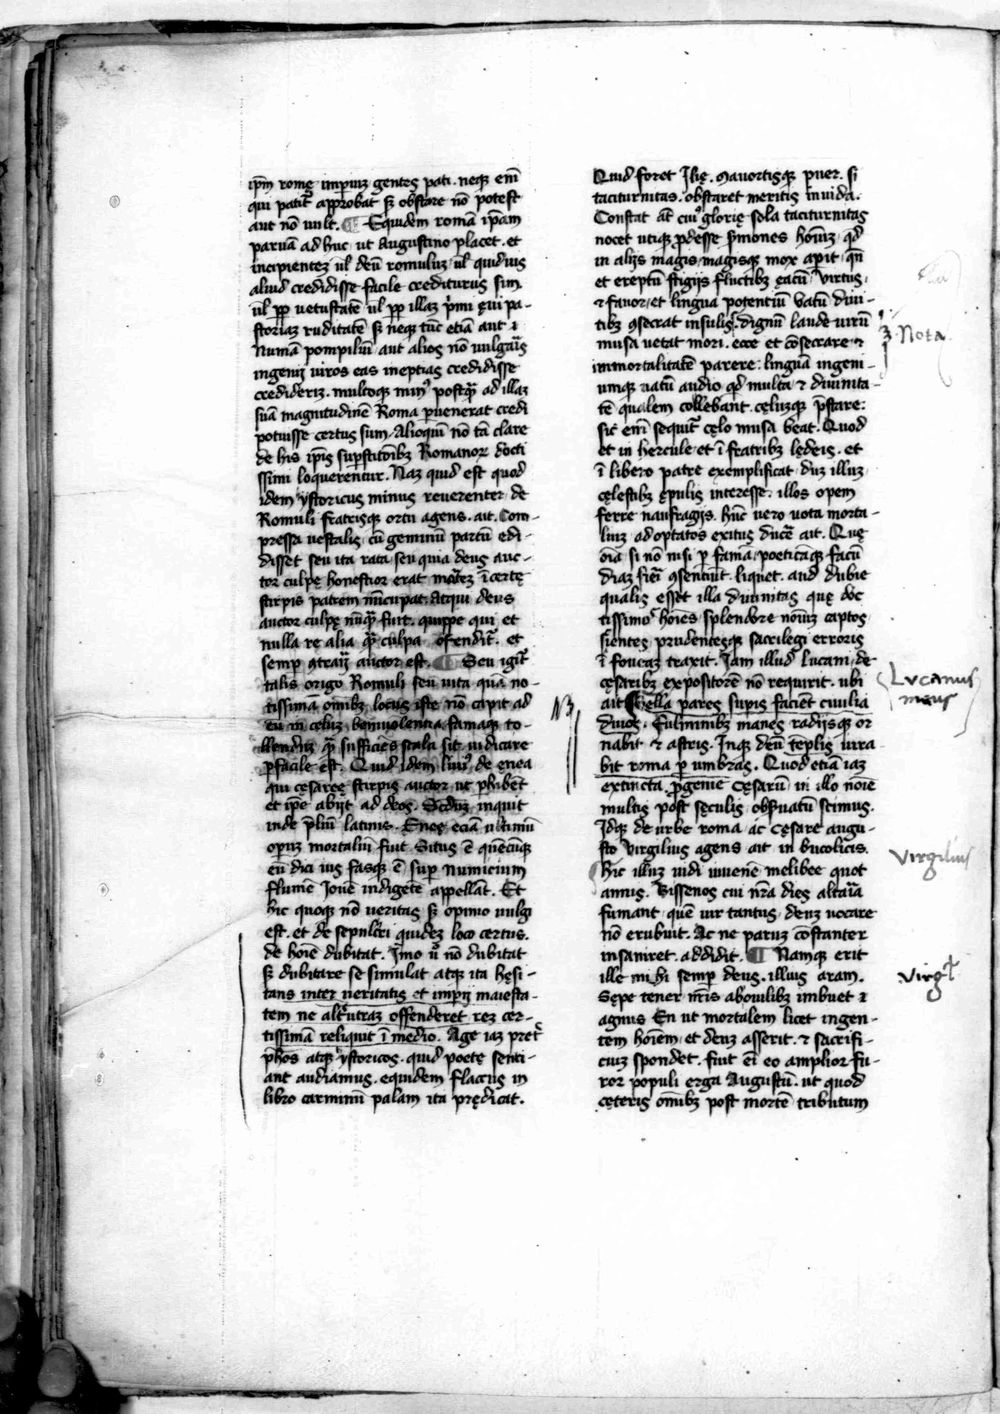 ip̄m romę imꝑiuꝫ gentes pati. neqꝫ em̄
qui patit᷑ approbat sꝫ obstare nō potest
aut nō uult. ¶ Equidem romā ip̄am
paruā ad huc ut Augustino placet. et
incipientez ul̄ deū romuluz ul̄ quiduis
aliud credidisse facile crediturus sim
ul̄ ꝓp̄ uetustatē ul̄ ꝓp̄ illaꝫ p̄mi ęui pa-
storiaꝫ ruditatē sꝫ neqꝫ tūc etiā aut ꝛ
Numā pompiliū aut alios nō uulgaris
ingenij uiros eas ineptias credidisse
crediderīz. multoqꝫ minꝰ postqꝫ̄ ad illaz
suā magnitudinē Roma ꝑuenerat credi
potuisse certus sum. Alioquin nō tā clare
de his ip̄is suꝑstitōibꝫ Romanoꝝ docti
ssimi loquerentur. Naꝫ quid est quod
idem ystoricus minus reuerenter de
Romuli fratrisqꝫ ortu agens. ait. Com-
pressa uestalis cū geminū partū edi-
disset seu ita rata seu quia deus auc-
tor culpę honestior erat martez īcertę
stirpis patrem nūcupat. Atqui deus
auctor culpę nūqꝫ̄ fuit. quippe qui et
nulla re alia qꝫ̄ culpa ofendit᷑. et
semꝑ ꝯtrariꝰ auctor est. ¶ Seu igit᷑
talis origo Romuli seu uita quā no-
tissimā omībꝫ locus iste nō capit ad
eū in cęluz beniuolentia famaqꝫ to-
llenduz qꝫ̄ sufficiēs scala sit iudicare
ꝑfacile est. Quid idem liuiꝰ de ęnea
qui cęsareę stirpis auctor ut ꝑhibēt
et ip̄e abijt ad deos. Scd̄uꝫ inquit
inde p̄liū latinis. Eneę eciā ultimū
operuꝫ mortaliū fuit. Situs ē quēcūqꝫ
eū dici ius fasqꝫ ē suꝑ numicium
flumē Jouē indigetē appellāt. Et
hic quoqꝫ nō ueritas sꝫ opinio uulgi
est. et de sepulcri quidez loco certus.
de hoīe dubitat. Jmo ū nō dubitat
sꝫ dubitare se simulat atqꝫ ita hęsi-
tans inter ueritatis et imꝑij maiesta-
tem ne alterutraꝫ offenderet rez cer-
tissimā reliquit ī medio. Age iaꝫ preter
ph̄os atqꝫ ystoricos. quid poetę senti-
ant audiamus. equidem flaccus in
libro carminū palam ita prędicat.
Quid foret Jlię. mauortisqꝫ puer. si
taciturnitas. obstaret meritis inuida.
Constat at̄ cuiꝰ glorię sola taciturnitas
nocet utiqꝫ ꝓdesse s̄mones homīuꝫ qd̄
in alijs magis magisqꝫ mox aperit qn̄
et ereptū stigijs fluctibꝫ ęacū virtus
⁊ fauor et lingua potentiū vatū diui-
tibꝫ ꝯsecrat insulis. dignū laude uirū
musa uetat mori. ecce et cōsecrare ⁊
immortalitatē parere linguā ingeni-
umqꝫ uatū audio qd̄ multa ⁊ diuinita-
tē qualem collebant. cęluzqꝫ p̄stare:
sic em̄ sequit᷑ cęlo musa beat. Quod
et in hercule et ī fratribꝫ lędeis. et
ī libero patre exemplificat duꝫ illuꝫ
cęlestibꝫ ępulis interesse. illos opem
ferre naufragijs. hūc uero uota morta-
liuꝫ ad optatos exitus ducē ait. Quę
oīa si nō nisi ꝑ famā poeticāqꝫ facū
diaꝫ fieri ꝯsentiūt. liquet. aud dubie
qualis esset illa diuinitas quę doc
tissimos hoīes splendore nomiꝫ captos
sciētes prudentesqꝫ sacrilegi erroris
ī foueaꝫ traxit. Jam illud Lucani de
cęsaribꝫ expositorē nō requirit. ubi
ait Bella pares supis faciēt ciuilia
diuos. Fulminibꝫ manes radijsqꝫ or
nabit ⁊ astris. Jnqꝫ deū tēplis iura-
bit roma ꝑ umbras. Quod etiā iaꝫ
extincta progenie cęsarū in illo noīe
multis post sęculis obseruatū scimus.
Jdqꝫ de urbe roma ac cęsare augu-
sto Virgilius agens ait in bucolicis.
Hic illuꝫ uidi iuuenē melibee quot
annis. Bissenos cui nr̄a dies altaria
fumant quē uir tantus deuꝫ uocare
nō erubuit. Ac ne paruꝫ cōstanter
insaniret. addidit. ¶ Namqꝫ erit
ille mihi semꝑ deus. illius aram.
Sępe tener nr̄is abouilibꝫ imbuet ꝛ
agnus En ut mortalem licet ingen-
tem hoīem et deuꝫ asserit. ⁊ sacrifi-
ciuꝫ spondet. fuit ei eo amplior fu-
ror populi erga Augustū. ut quod
cęteris omībꝫ post mortē tributum
Nota
Lucanus
Virgilius
Virgl̓
NB